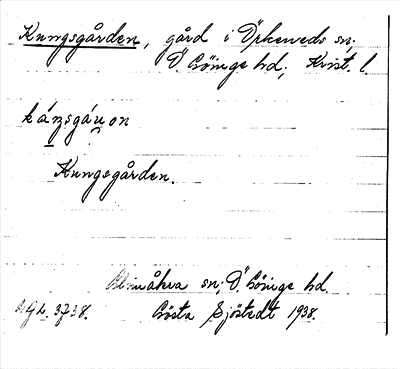 Kungsgården, gård i Örkeneds sn;
Ö. Göinge hd; Krist. l.
káŋsgáu̯on
Kungsgården.
Almåkra sn; Ö. Göinge hd.
Gösta Sjöstedt 1938.